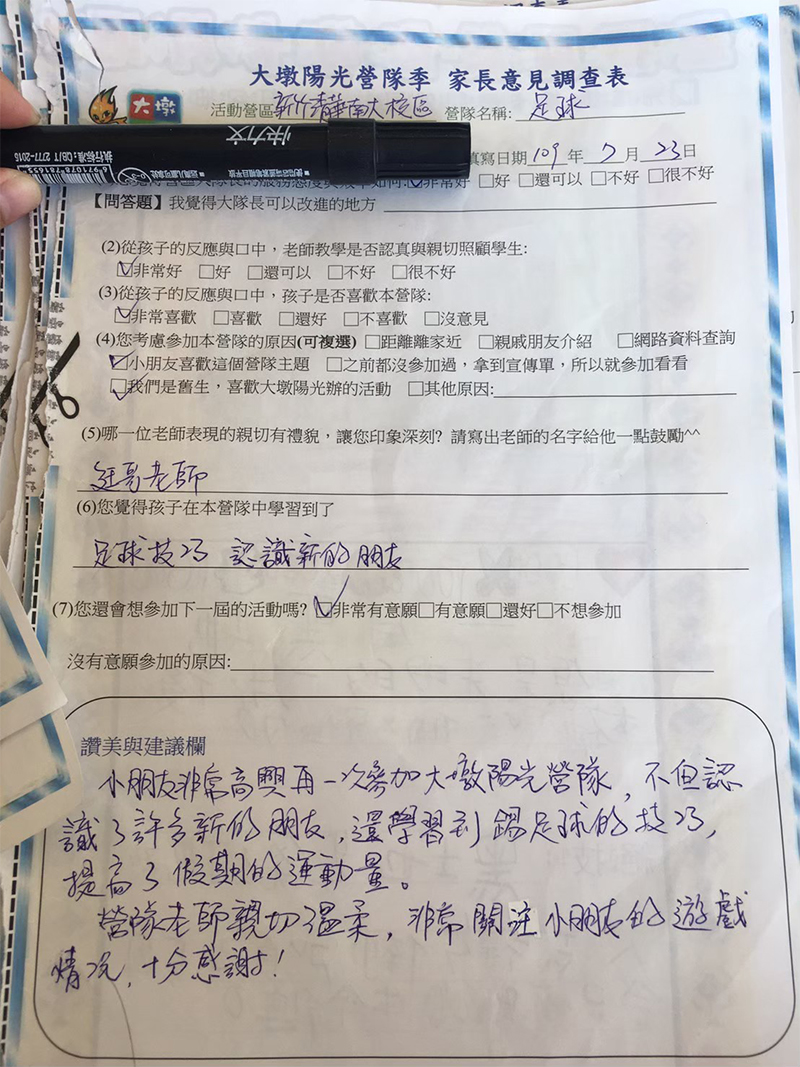 大墩陽光營隊季 家長意見調查表
大墩 活動營區新竹清華南大校區 營隊名稱: 足球
填寫日期 109 年 7 月 23 日
☑非常好 □好 □還可以 □不好 □很不好
【問答題】我覺得大隊長可以改進的地方
(2)從孩子的反應與口中，老師教學是否認真與親切照顧學生:
☑非常好 □好 □還可以 □不好 □很不好
(3)從孩子的反應與口中，孩子是否喜歡本營隊:
☑非常喜歡 □喜歡 □還好 □不喜歡 □沒意見
(4)您考慮參加本營隊的原因(可複選) □距離離家近 □親戚朋友介紹 □網路資料查詢
☑小朋友喜歡這個營隊主題 □之前都沒參加過，拿到宣傳單，所以就參加看看
☑我們是舊生，喜歡大墩陽光辦的活動 □其他原因:
(5)哪一位老師表現的親切有禮貌，讓您印象深刻? 請寫出老師的名字給他一點鼓勵^^
老師
(6)您覺得孩子在本營隊中學習到了
足球技巧 認識新的朋友
(7)您還會想參加下一屆的活動嗎? ☑非常有意願□有意願□還好□不想參加
沒有意願參加的原因:
讚美與建議欄
小朋友非常高興再一次參加大墩陽光營隊，不但認
識了許多新的朋友，還學習到踢足球的技巧，
提高了假期的運動量。
營隊老師親切溫柔，非常關注小朋友的遊戲
情況，十分感謝！
快力文
執行标准:QB/T 2777-2015